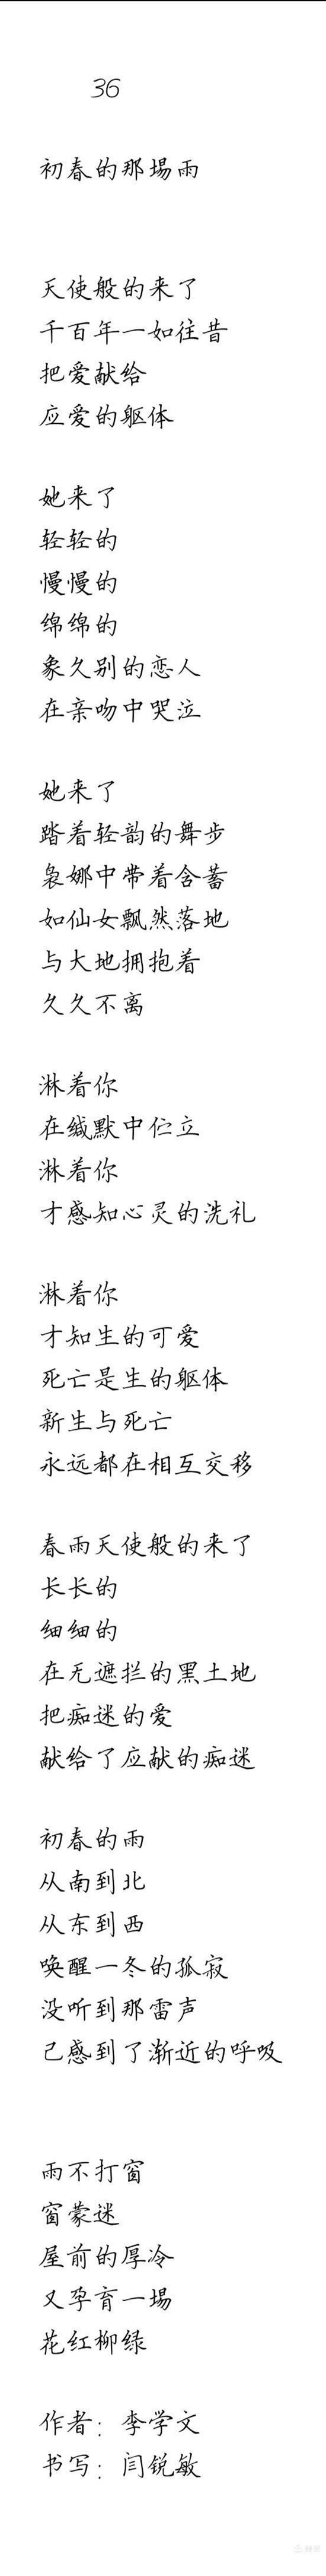 36
初春的那場雨
天使般的来了
千百年一如往昔
把爱献给
应爱的躯体
她来了
轻轻的
慢慢的
绵绵的
象久别的恋人
在亲吻中哭泣
她来了
踏着轻韵的舞步
袅娜中带着含蓄
如仙女飘然落地
与大地拥抱着
久久不离
淋着你
在缄默中伫立
淋着你
才感知心灵的洗礼
淋着你
才知生的可爱
死亡是生的躯体
新生与死亡
永远都在相互交移
春雨天使般的来了
长长的
细细的
在无遮拦的黑土地
把痴迷的爱
献给了应献的痴迷
初春的雨
从南到北
从东到西
唤醒一冬的孤寂
没听到那雷声
己感到了渐近的呼吸
雨不打窗
窗蒙迷
屋前的厚冷
又孕育一場
花红柳绿
作者：李学文
书写：闫锐敏